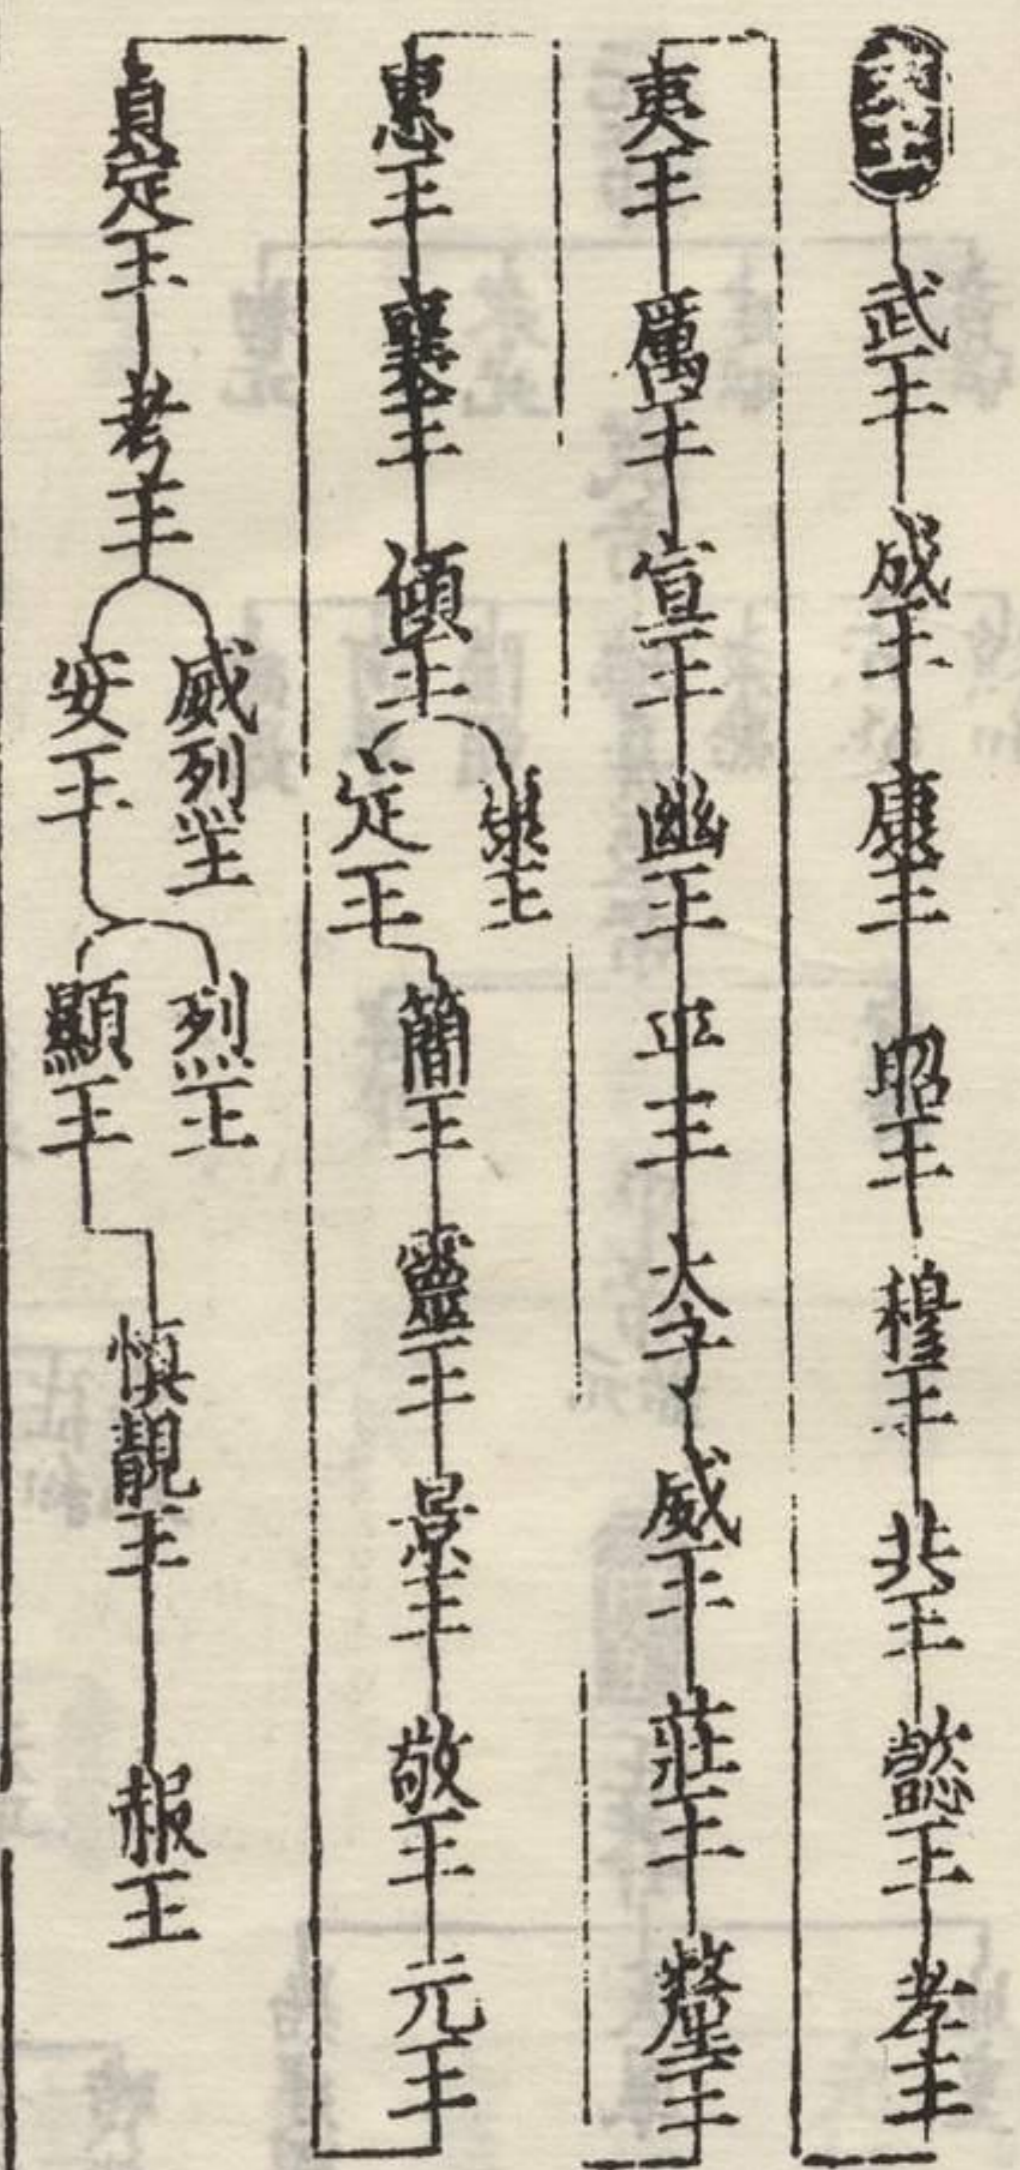 文王 武王 成王 康王 昭王 穆王 共王 懿王 孝王
夷王 厲王 宣王 幽王 平王 太子 威王 莊王 釐王
惠王 襄王 傾王 匡王 定王 簡王 靈王 景王 敬王 元王
貞定王 考王 威列王 安王 烈王 顯王 慎靚王 赧王